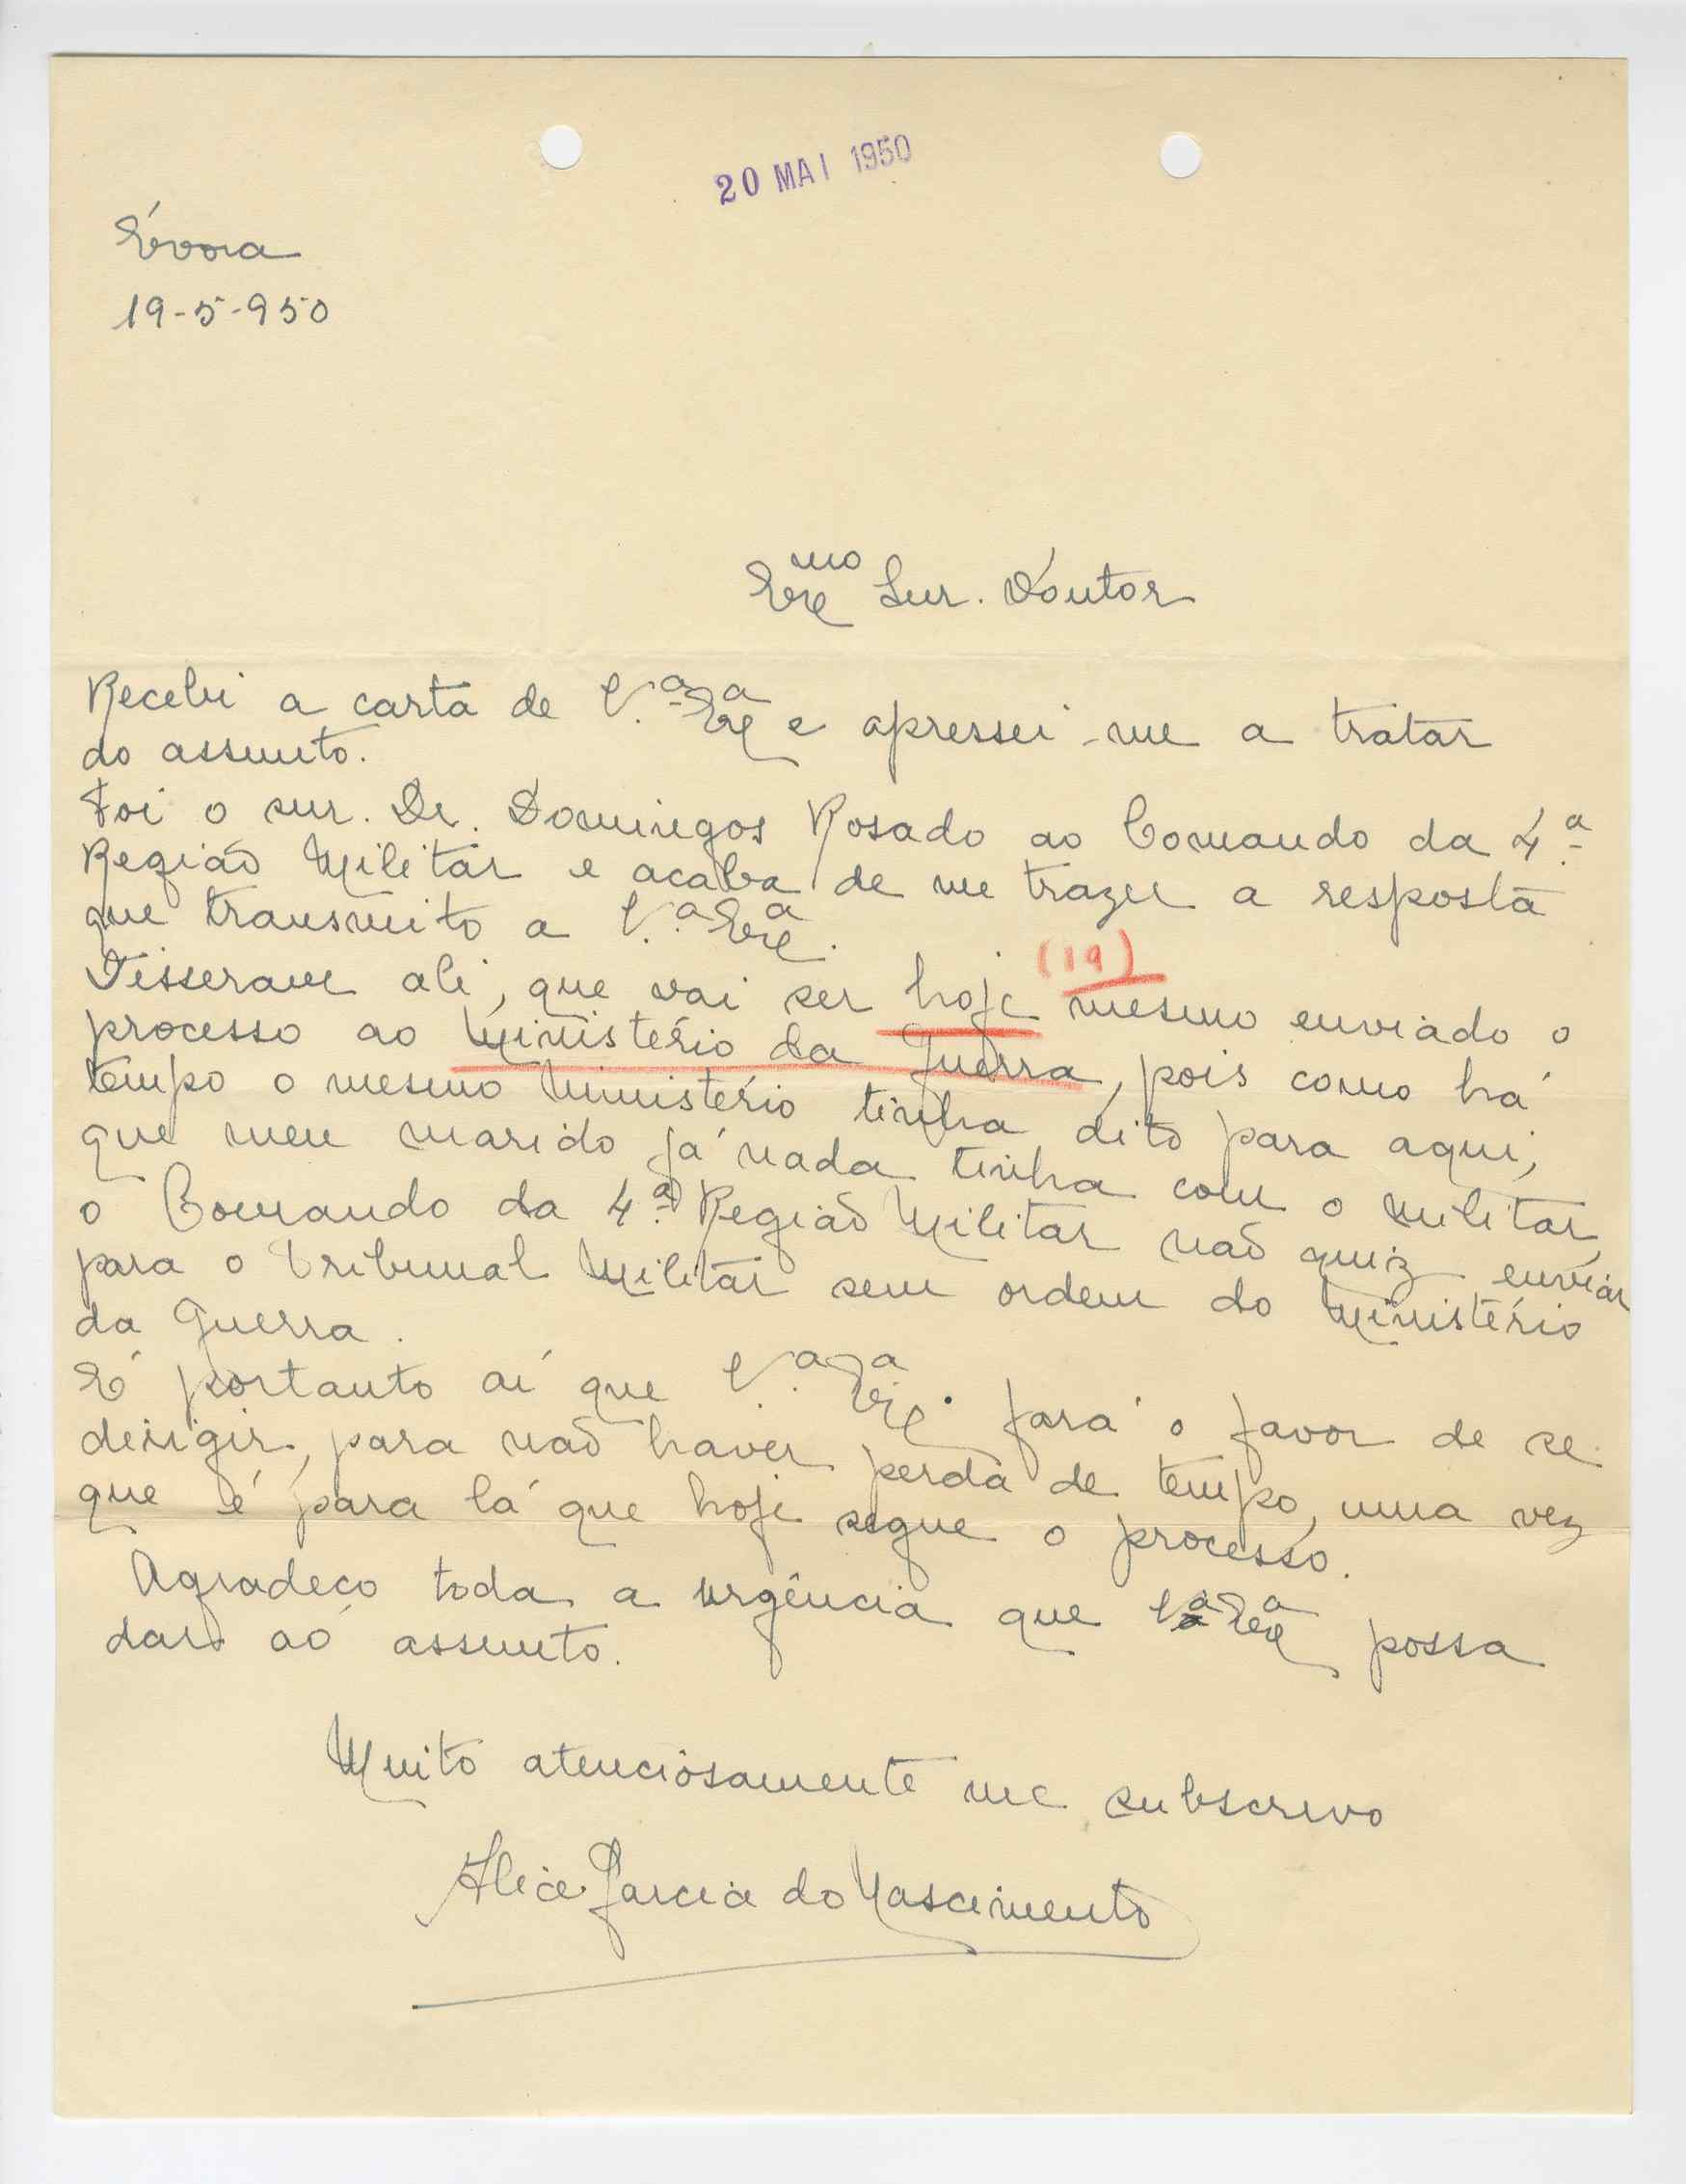 20 MAI 1950
Évora
19-5-950
Exmo Snr. Doutor
Recebi a carta de V.ª Exª e apressei-me a tratar
do assunto.
Foi o snr. Dr. Domingos Rosado ao Comando da 4.ª
Região Militar e acaba de me trazer a resposta
que transmito a V.ª Exª.
(19)
Disseram ali, que vai ser hoje mesmo enviado o
processo ao Ministério da Guerra, pois como há
tempo o mesmo Ministério tinha dito para aqui,
que meu marido já nada tinha com o militar,
o Comando da 4.ª Região Militar não quiz enviar
para o Tribunal Militar sem ordem do Ministério
da Guerra.
É portanto aí que V.ª Exª. fará o favor de se
dirigir, para não haver perda de tempo, uma vez
que é para lá que hoje segue o processo.
Agradeço toda a urgência que Vª Exª possa
dar ao assunto.
Muito atenciosamente me subscrevo
Alice Garcia do Nascimento